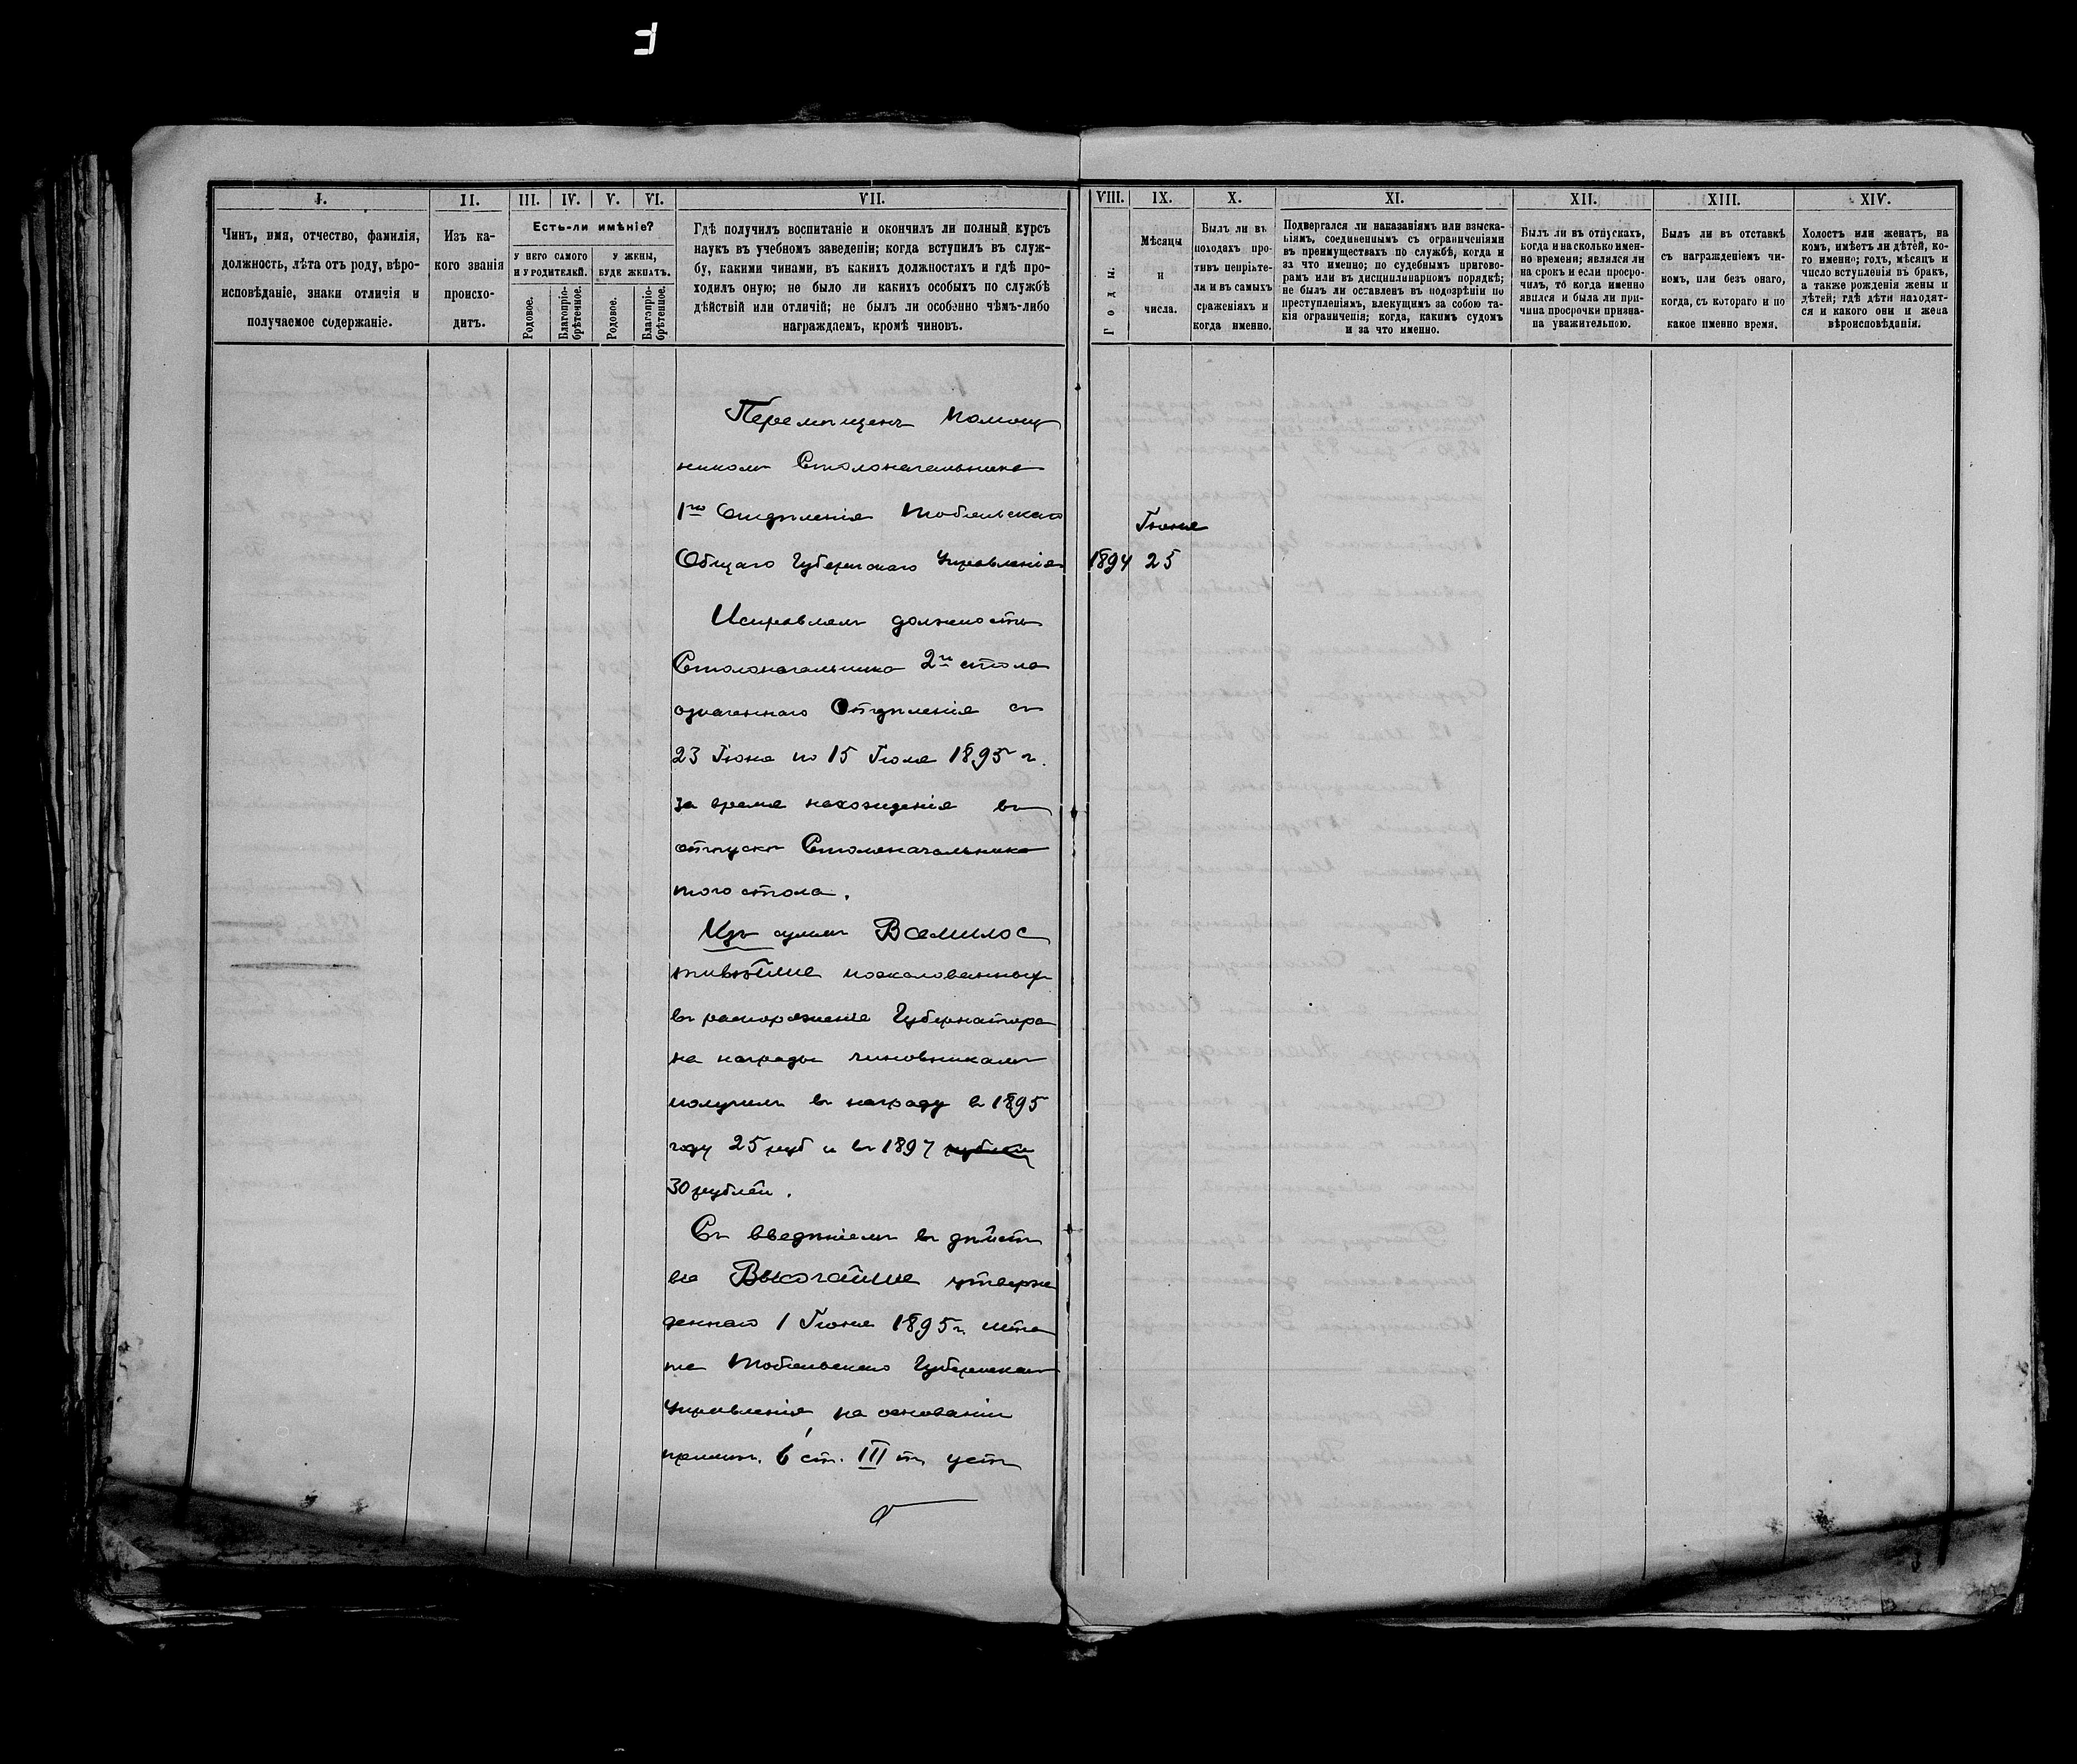 I.
Чинъ, имя, отчество, фамилія,
должность, лѣта отъ роду, вѣро-
исповѣданіе, знаки отличія и
получаемое содержаніе.
II.
Изъ ка-
кого званія
происхо-
дитъ.
III. IV. V. VI.
Есть-ли имѣніе?
У него самого
и у родителей.
У жены,
буде женатъ.
Родовое.
Благопріо-
брѣтенное.
Родовое.
Благопріо-
брѣтенное.
VII.
Гдѣ получилъ воспитаніе и окончилъ ли полный курсъ
наукъ въ учебномъ заведеніи; когда вступилъ въ служ-
бу, какими чинами, въ какихъ должностяхъ и гдѣ про-
ходилъ оную; не было ли какихъ особыхъ по службѣ
дѣйствій или отличій; не былъ ли особенно чѣмъ-либо
награждаемъ, кромѣ чиновъ.
Перемѣщенъ Помощ
никомъ Столоначальника
1го Отдѣленія Тобольскаго
Общаго Губернскаго Управленія
Исправлялъ должность
Столоначальника 2го стола
означеннаго Отдѣленія съ
23 Іюня по 15 Іюля 1895 г.
за время нахожденія въ
отпуску Столоначальника
того стола.
Изъ суммъ Всемилос
тивѣйше пожалованныхъ
въ распоряженіе Губернатора
на награды чиновникамъ
получилъ въ награду въ 1895
году 25 руб и въ 1897 рублей
30 рублей.
Съ введеніемъ въ дѣйст
віе Высочайше утверж
деннаго 1 Іюня 1895 г. шта
та Тобольскаго Губернскаго
Управленія, на основаніи
примѣч. 6 ст. III т. уст
VIII.
Годы.
IX.
Мѣсяцы
и
числа.
Іюня
1894 25
X.
Былъ ли въ
походахъ про-
тивъ непріяте-
ля и въ самыхъ
сраженіяхъ и
когда именно.
XI.
Подвергался ли наказаніямъ или взыска-
ніямъ, соединеннымъ съ ограниченіями
въ преимуществахъ по службѣ, когда и
за что именно; по судебнымъ пригово-
рамъ или въ дисциплинарномъ порядкѣ;
не былъ ли оставленъ въ подозрѣніи по
преступленіямъ, влекущимъ за собою та-
кія ограниченія; когда, какимъ судомъ
и за что именно.
XII.
Былъ ли въ отпускахъ,
когда и на сколько имен-
но времени; являлся ли
на срокъ и если просро-
чилъ, то когда именно
явился и была ли при-
чина просрочки призна-
на уважительною.
XIII.
Былъ ли въ отставкѣ
съ награжденіемъ чи-
номъ, или безъ онаго,
когда, съ котораго и по
какое именно время.
XIV.
Холостъ или женатъ, на
комъ, имѣетъ ли дѣтей, ко-
го именно; годъ, мѣсяцъ и
число вступленія въ бракъ,
а также рожденія жены и
дѣтей; гдѣ дѣти находят-
ся и какого они и жена
вѣроисповѣданія.